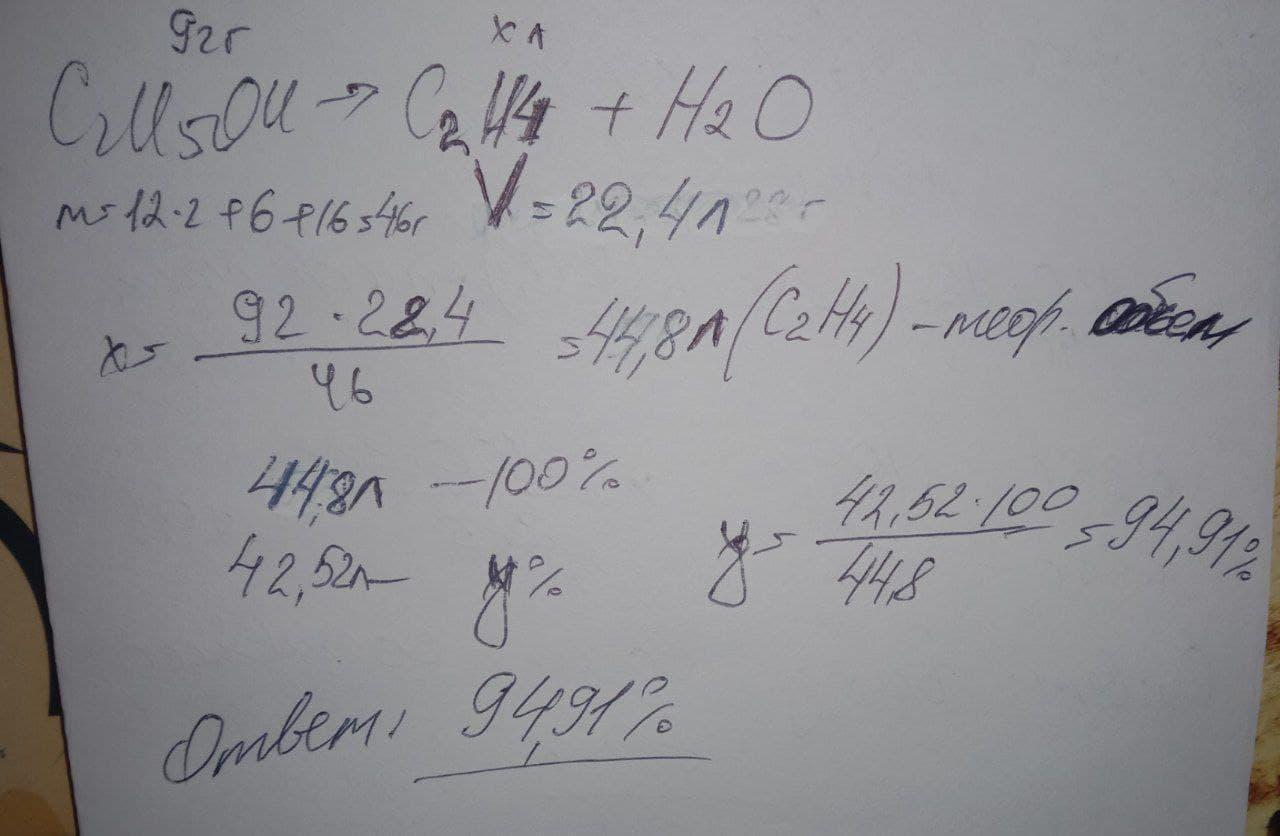 92г xл
C2H5OH → C2H4 + H2O
m=12·2+6+16=46г V=22,4л
x= 92·22,4 / 46 =44,8л (C2H4) - теор. обем
44,8л — 100%
42,52л — y% y= 42,52·100 / 44,8 =94,91%
Ответ: 94,91%